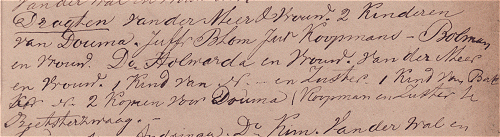 Dragten van der Meer & Vrouw. 2 Kinderen
van Douma. Juffr Blom Jufr Koopmans - Bolman
en Vrouw. Ds Holwarda en Vrouw. van der Meer
en Vrouw. 1 Kind van N. - en Zuster 1 Kind van
N. 2 Kopien voor Douma (Koopman en Zuster te
Beetsterzwaag. -
Ds Kum. Van der Wal en